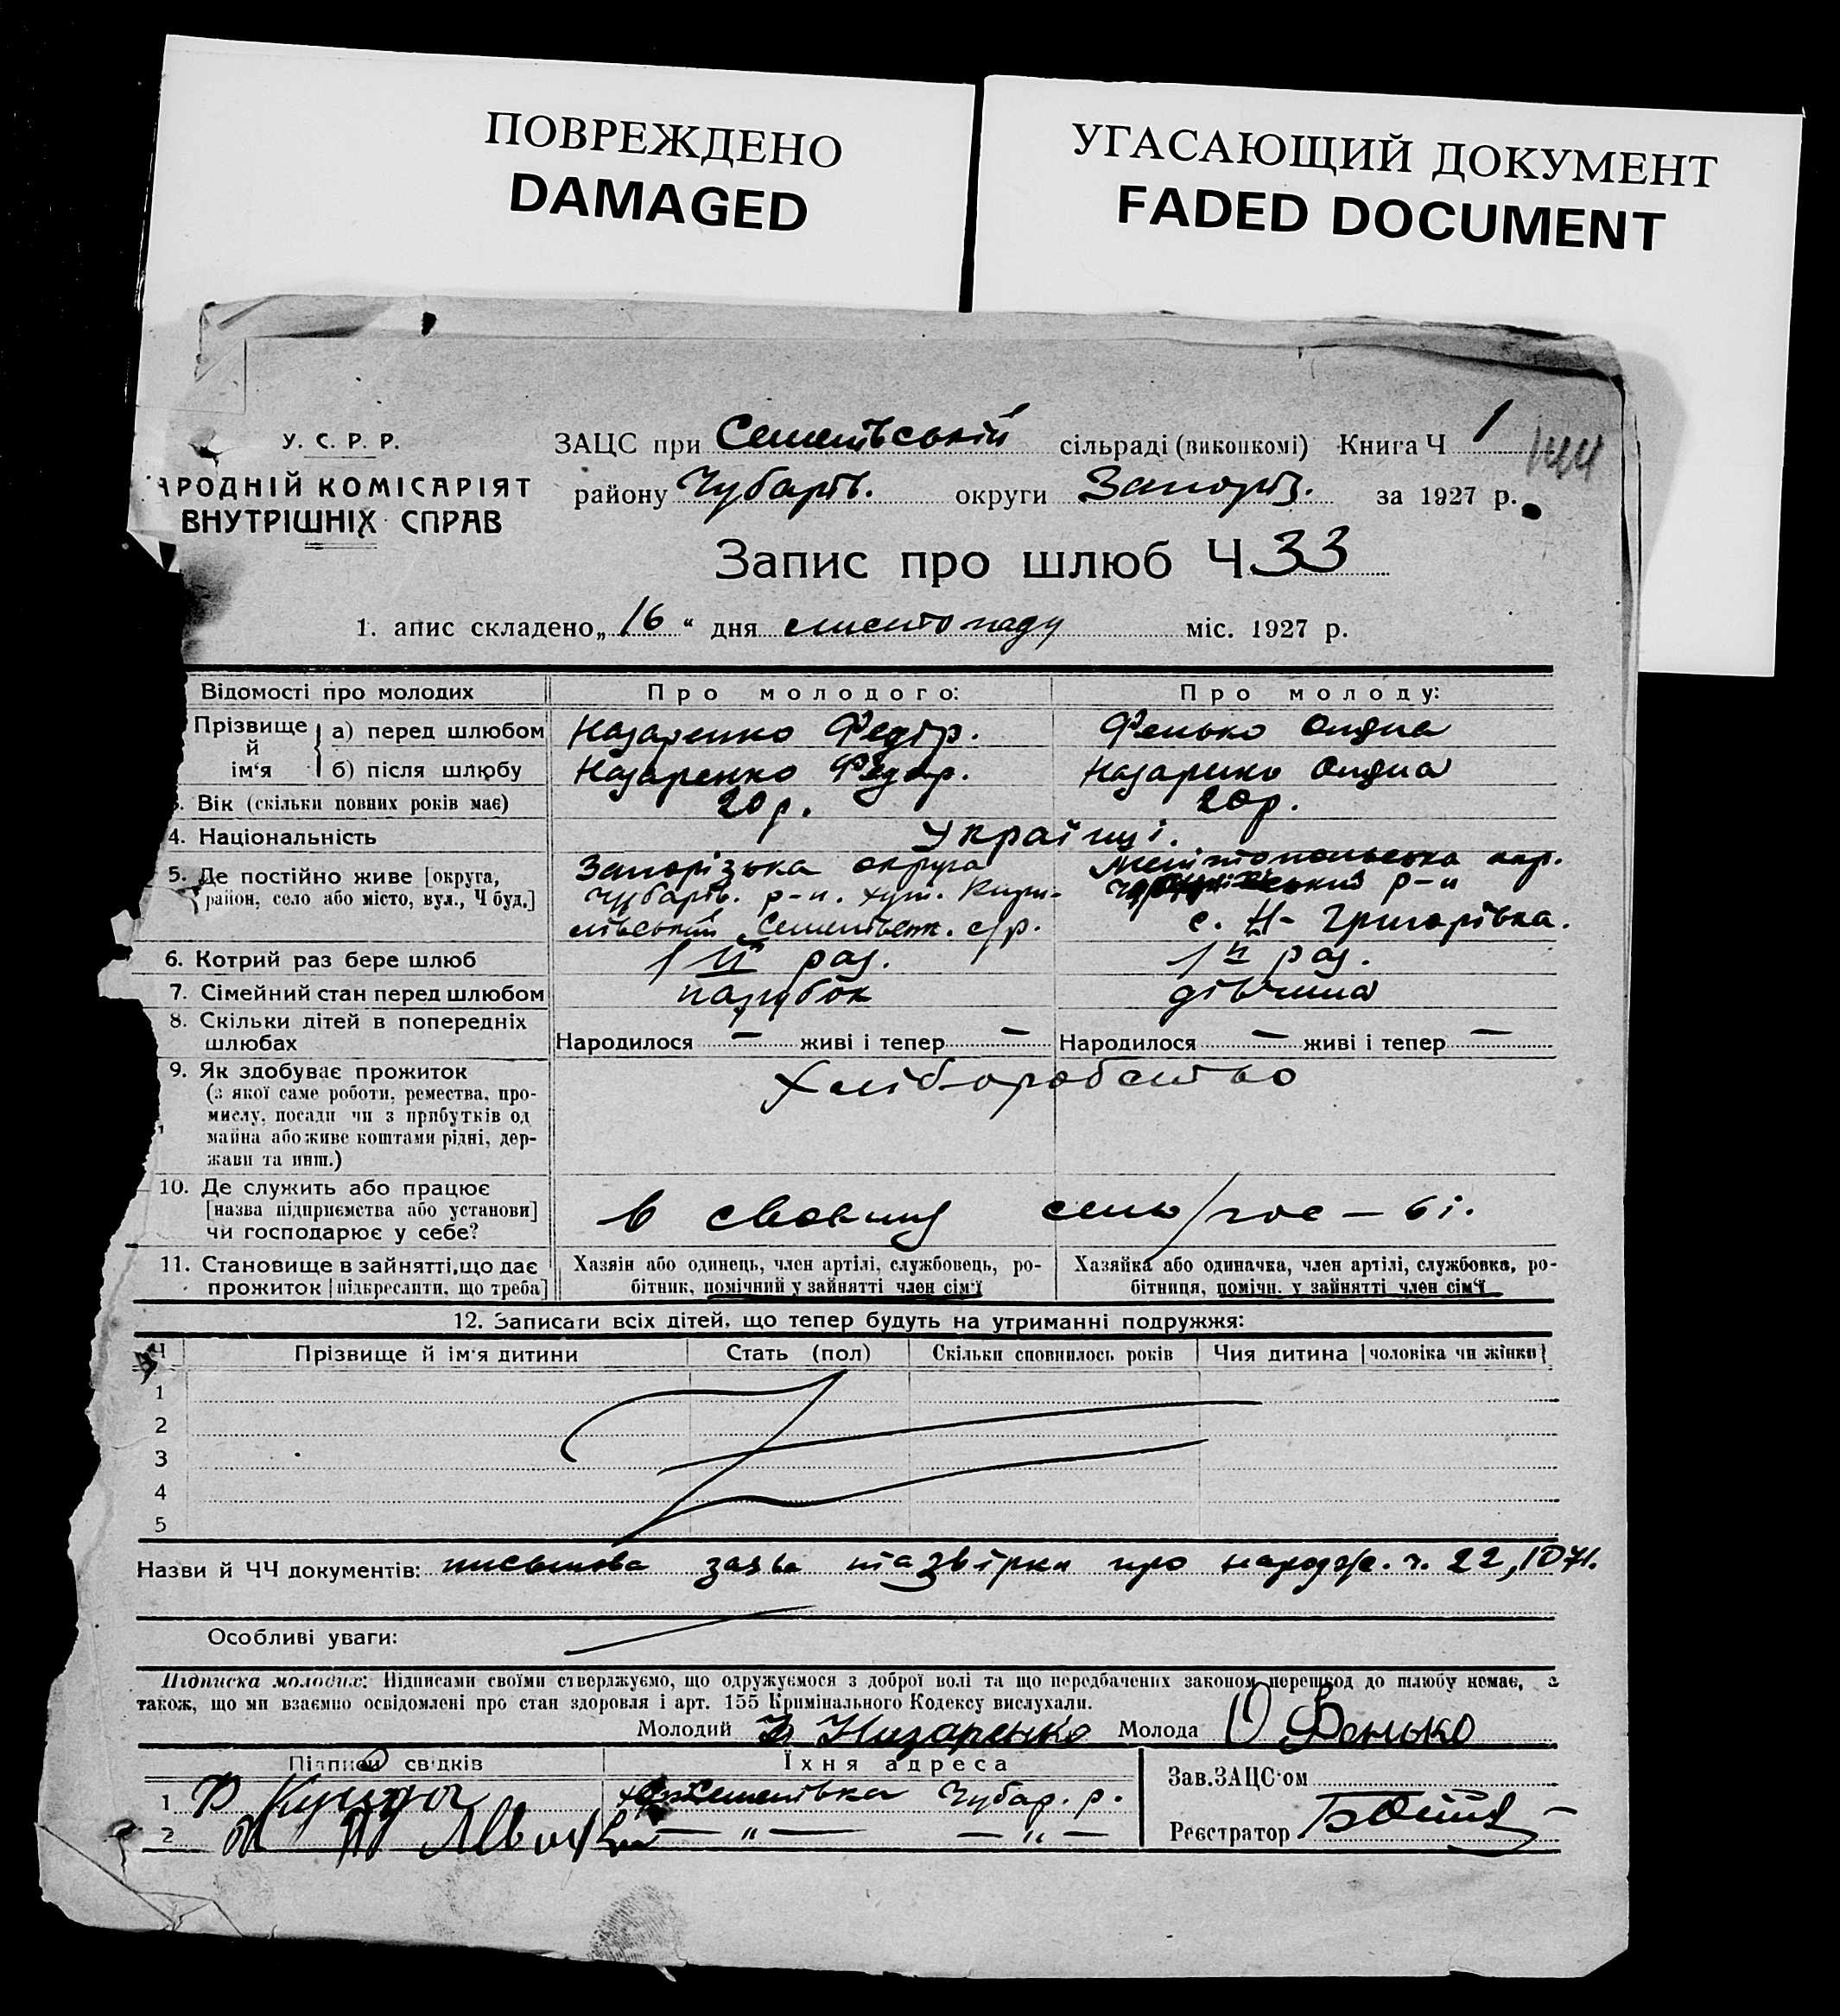 ПОВРЕЖДЕНО
DAMAGED
УГАСАЮЩИЙ ДОКУМЕНТ
FADED DOCUMENT
У. С. Р. Р.
АРОДНІЙ КОМІСАРІЯТ
ВНУТРІШНІХ СПРАВ
ЗАЦС при Семенівській сільраді (виконкомі) Книга Ч 1
району Чубарів. округи Запоріз. за 1927 р.
Запис про шлюб Ч. 33
1. апис складено „16“ дня листопаду міс. 1927 р.
Відомості про молодих Про молодого: Про молоду:
Прізвище й ім'я
а) перед шлюбом Назаренко Федір. Фенько
б) після шлюбу Назаренко Федір. Назаренко
3. Вік (скільки повних років має) 20 р. 20 р.
4. Національність Українці.
5. Де постійно живе [округа, район, село або місто, вул., Ч буд.]
Запорізька округа
Чубарів. р-н. хут. Кири-
лівський Семенівськ. с/р.
Мелітопольська окр.
р-н
с. Н- Григорівка.
6. Котрий раз бере шлюб 1й раз. 1й раз.
7. Сімейний стан перед шлюбом парубок дівчина
8. Скільки дітей в попередніх шлюбах
Народилося — живі і тепер — Народилося — живі і тепер —
9. Як здобуває прожиток
(з якої саме роботи, ремества, про-
мислу, посади чи з прибутків од
майна або живе коштами рідні, дер-
жави та инш.)
Хліборобство
10. Де служить або працює
[назва підприємства або установи]
чи господарює у себе?
в своєму сель/гос-ві.
11. Становище в зайнятті, що дає
прожиток [підкреслити, що треба]
Хазяїн або одинець, член артілі, службовець, ро-
бітник, помічний у зайнятті член сім'ї
Хазяйка або одиначка, член артілі, службовка, ро-
бітниця, помічн. у зайнятті член сім'ї
12. Записати всіх дітей, що тепер будуть на утриманні подружжя:
Ч Прізвище й ім'я дитини Стать (пол) Скільки сповнилось років Чия дитина [чоловіка чи жінки]
1
2
3
4
5
Назви й ЧЧ документів: письмова заява та звірки про народж. ч. 22, 1071.
Особливі уваги:
Підписка молодих: Підписами своїми стверджуємо, що одружуємося з доброї волі та що передбачених законом перешкод до шлюбу немає, а
також, що ми взаємно освідомлені про стан здоровля і арт. 155 Кримінального Кодексу вислухали.
Молодий Назаренко Молода О Фенько
Підписи свідків Їхня адреса
1 Семенівка Чубар. р.
2 — „ — — „ —
Зав. ЗАЦС'ом
Реєстратор